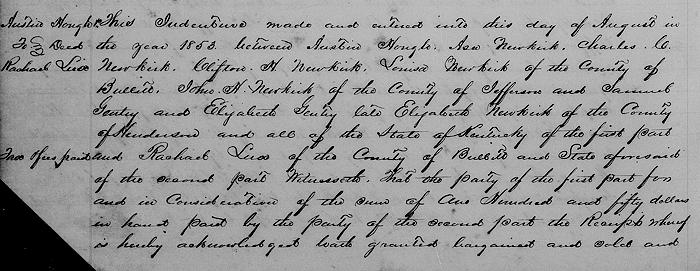 Austin Hough &c
To Deed
Rachael Lusa
Tax & fees paid
This Indenture made and entered into this day of August in
the year 1853 between Austin Hough. Asa Newkirk. Charles. C.
Newkirk. Clifton. H. Newkirk. Louisa Newkirk of the County of
Bullitt. John. H. Newkirk of the County of Jefferson and Samuel
Gentry and Elizabeth Gentry late Elizabeth Newkirk of the County
of Henderson and all of the State of Kentucky of the first part
and Rachael of the County of Bullitt and State aforesaid
of the second part Witnesseth. That the party of the first part for
and in Consideration of the sum of One Hundred and fifty dollars
in hand paid by the party of the second part the Receipt whereof
is hereby acknowledged hath granted bargained and sold and